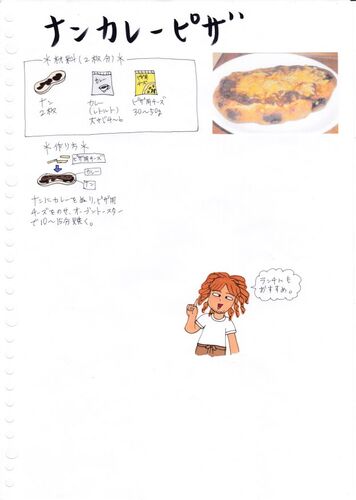 ナンカレーピザ
*材料(2枚分)*
ナン
2枚
カレー
(レトルト)
大さじ4~6
ピザ用チーズ
30~50g
*作り方*
ピザ用チーズ
カレー
ナン
ナンにカレーをぬり、ピザ用
チーズをのせ、オーブントースター
で10~15分焼く。
ランチにも
おすすめ。